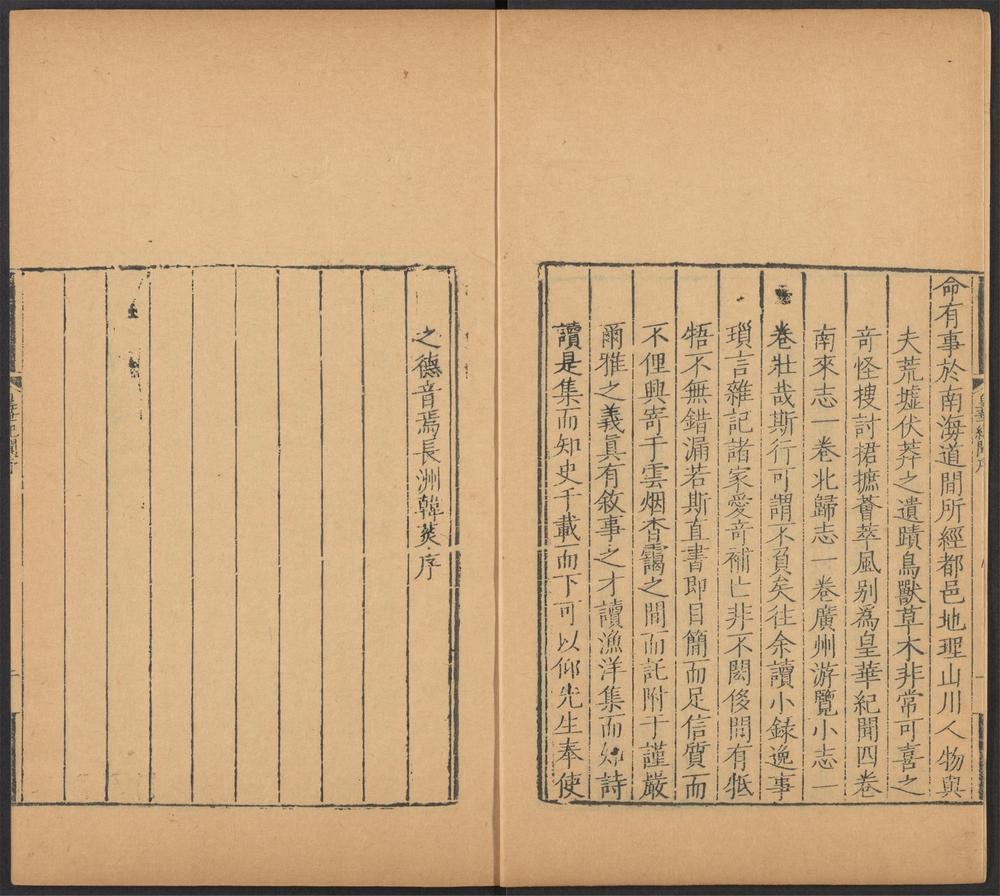 命有事於南海道間所經都邑地理山川人物與
夫荒墟伏莽之遺蹟鳥獸草木非常可喜之
竒怪捜討捃摭薈萃風别爲皇華紀聞四卷
南來志一卷北歸志一卷廣州游覽小志一
卷壯哉斯行可謂不負矣往余讀小録逸事
瑣言雜記諸家愛竒補亡非不閎侈間有牴
牾不無錯漏若斯直書即目簡而足信質而
不俚興寄于雲烟杳靄之間而託附于謹嚴
爾雅之義眞有敘事之才讀漁洋集而知詩
讀是集而知史千載而下可以仰先生奉使
之德音焉長洲韓菼序
皇華紀聞序
一